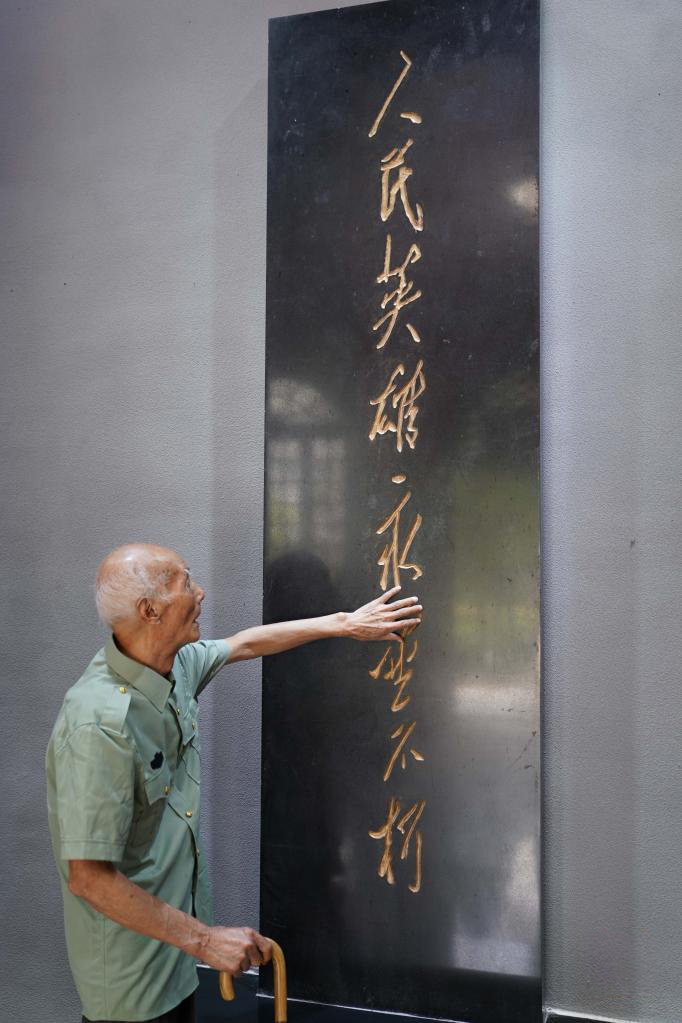 人民英雄永垂不朽